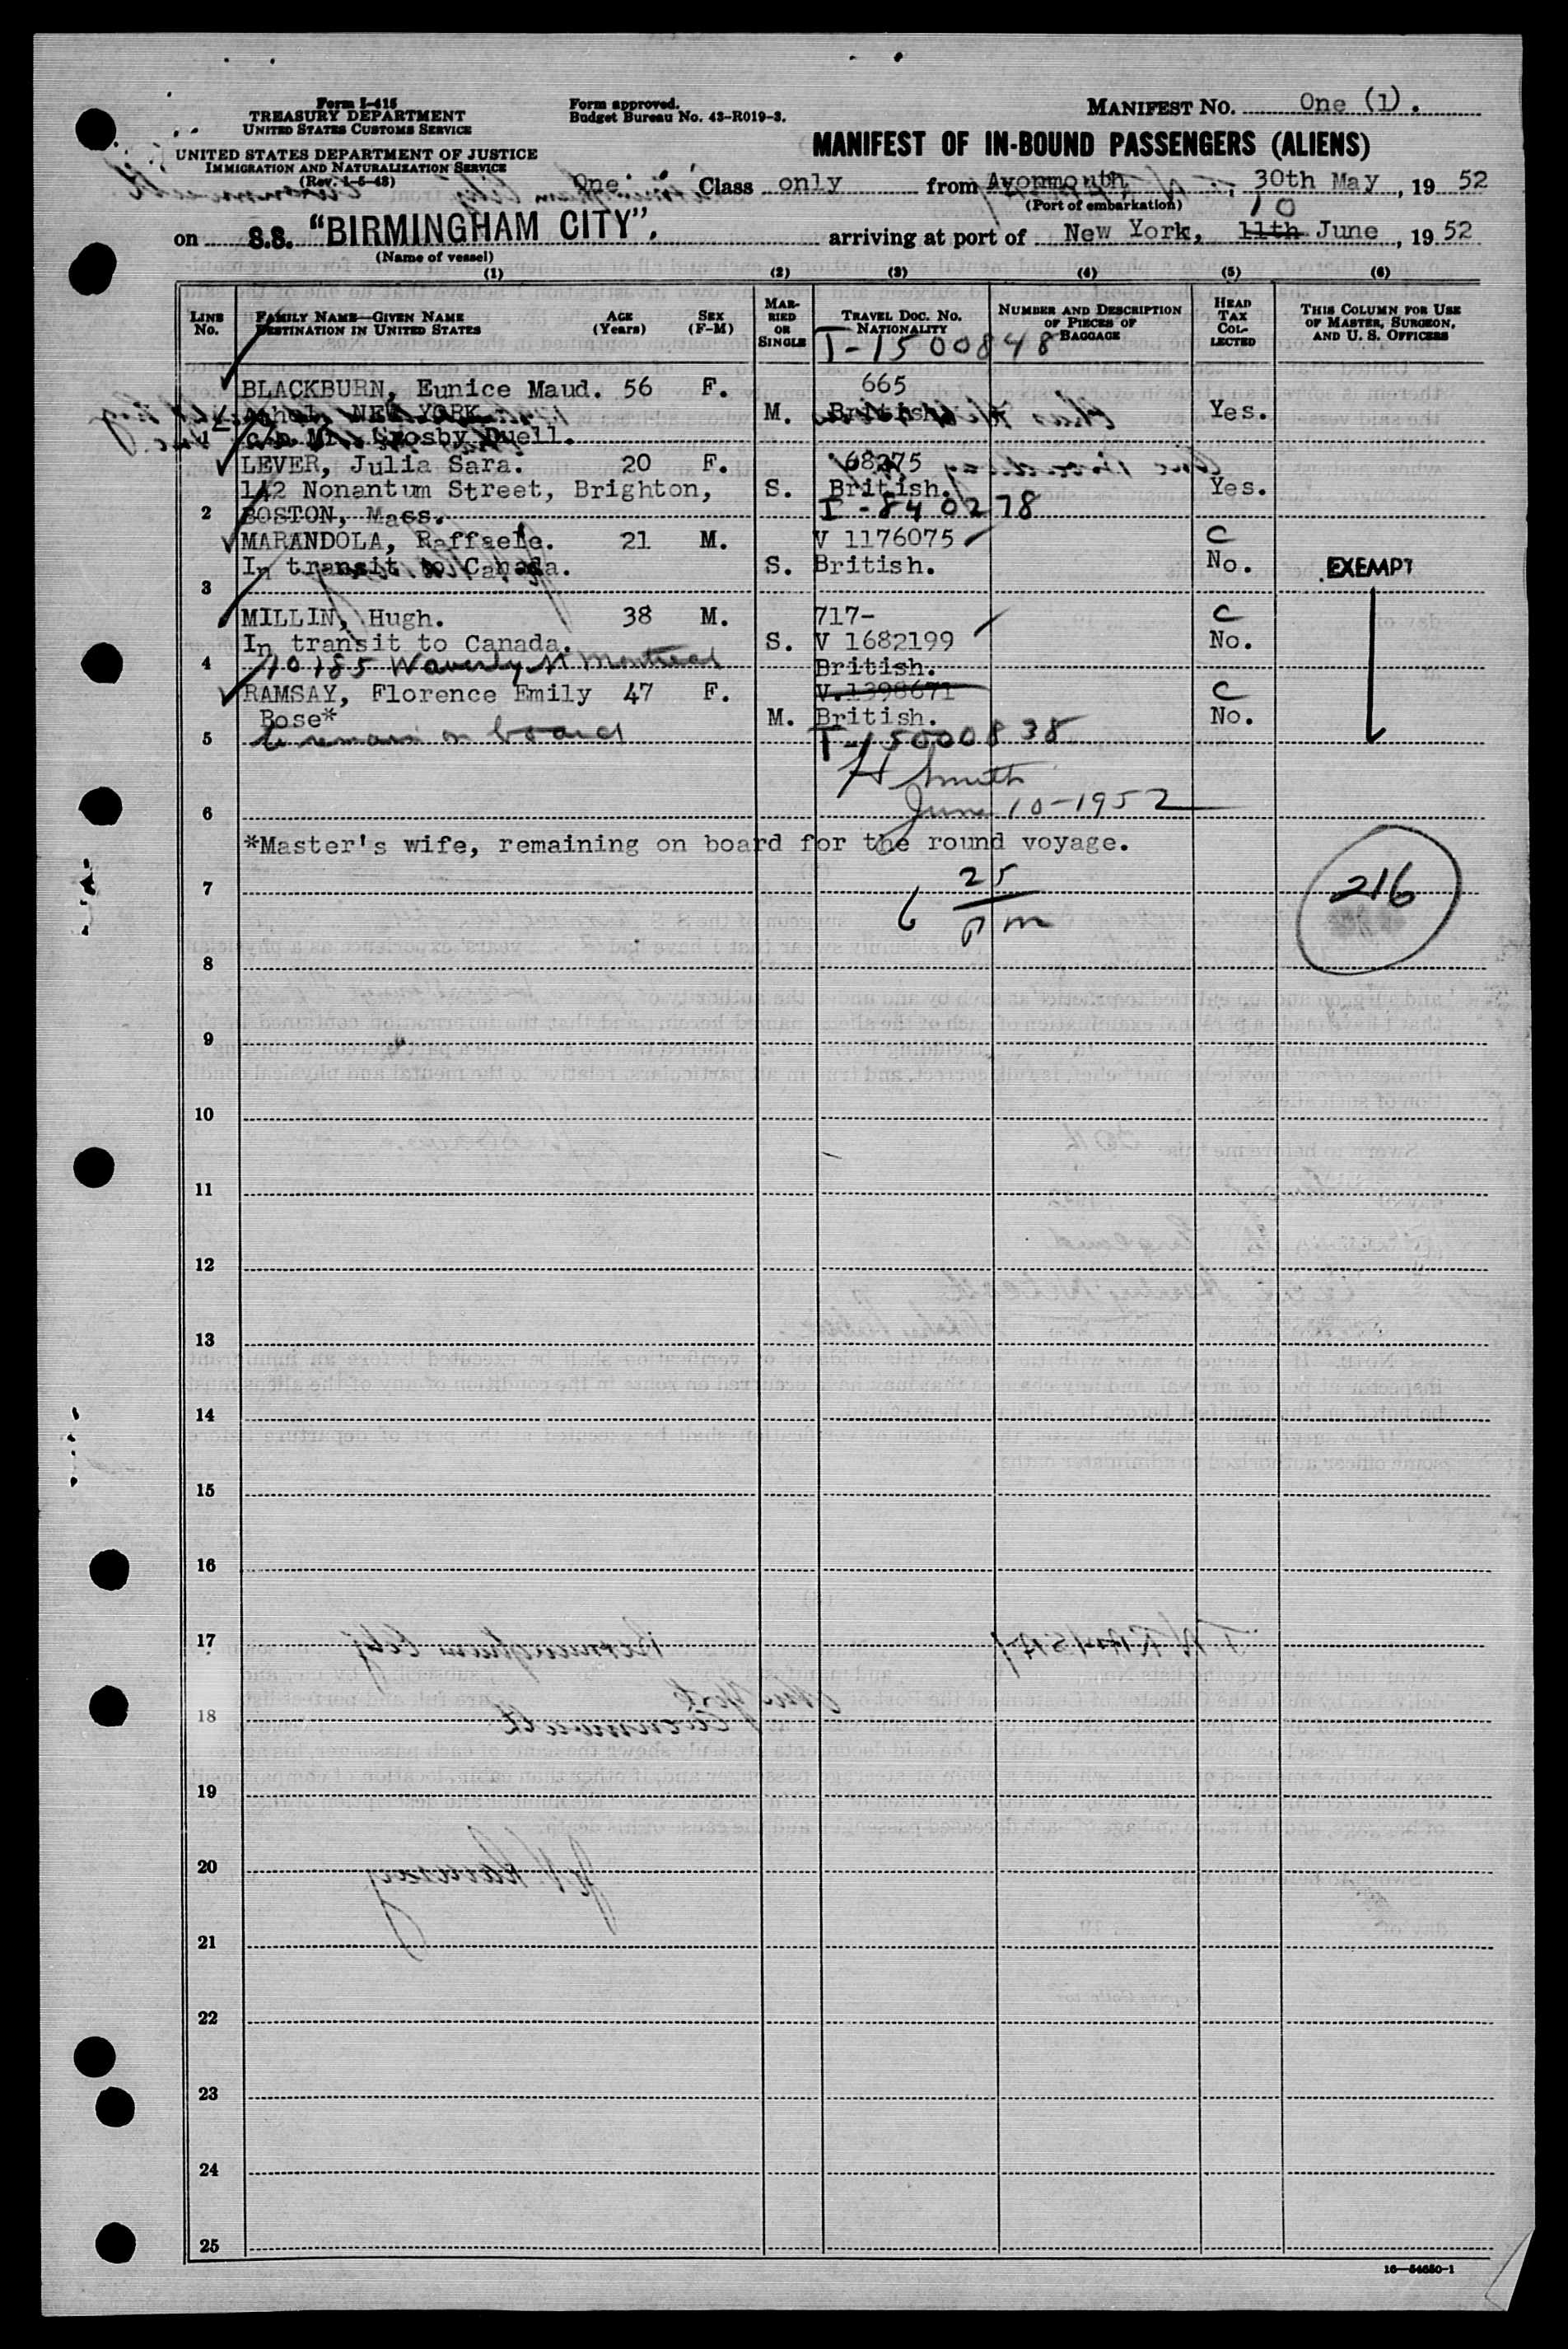 Form I-415
TREASURY DEPARTMENT
UNITED STATES CUSTOMS SERVICE
UNITED STATES DEPARTMENT OF JUSTICE
IMMIGRATION AND NATURALIZATION SERVICE
(Rev. 1-5-48)
Form approved.
Budget Bureau No. 43-R019-3.
MANIFEST NO. One (1).
MANIFEST OF IN-BOUND PASSENGERS (ALIENS)
One Class only from Avonmouth, 30th May, 19 52
(Port of embarkation)
10
on S.S. "BIRMINGHAM CITY". arriving at port of New York, 11th June, 19 52
(Name of vessel)
(1) (2) (3) (4) (5) (6)
LINE No. FAMILY NAME—GIVEN NAME DESTINATION IN UNITED STATES AGE (Years) SEX (F-M) MARRIED OR SINGLE TRAVEL DOC. NO. NATIONALITY NUMBER AND DESCRIPTION OF PIECES OF BAGGAGE HEAD TAX COLLECTED THIS COLUMN FOR USE OF MASTER, SURGEON, AND U. S. OFFICERS
T-1500848
BLACKBURN, Eunice Maud. 56 F. 665
Athol, NEW YORK M. British. Yes.
1 c/o Mr. Crosby Duell.
LEVER, Julia Sara. 20 F. 68275
142 Nonantum Street, Brighton, S. British. Yes.
2 BOSTON, Mass. I-840278
MARANDOLA, Raffaele. 21 M. V 1176075 C
In transit to Canada. S. British. No. EXEMPT
3
MILLIN, Hugh. 38 M. 717- C
In transit to Canada. S. V 1682199 No.
4 10185 Waverly St Montreal British.
RAMSAY, Florence Emily 47 F. V.1398671 C
Rose* M. British. No.
5 to remain on board T-1500838
H Smith
6 June 10-1952
*Master's wife, remaining on board for the round voyage.
7 6 25/pm 216
8
9
10
11
12
13
14
15
16
17
18
19
20
21
22
23
24
25
16—54650-1